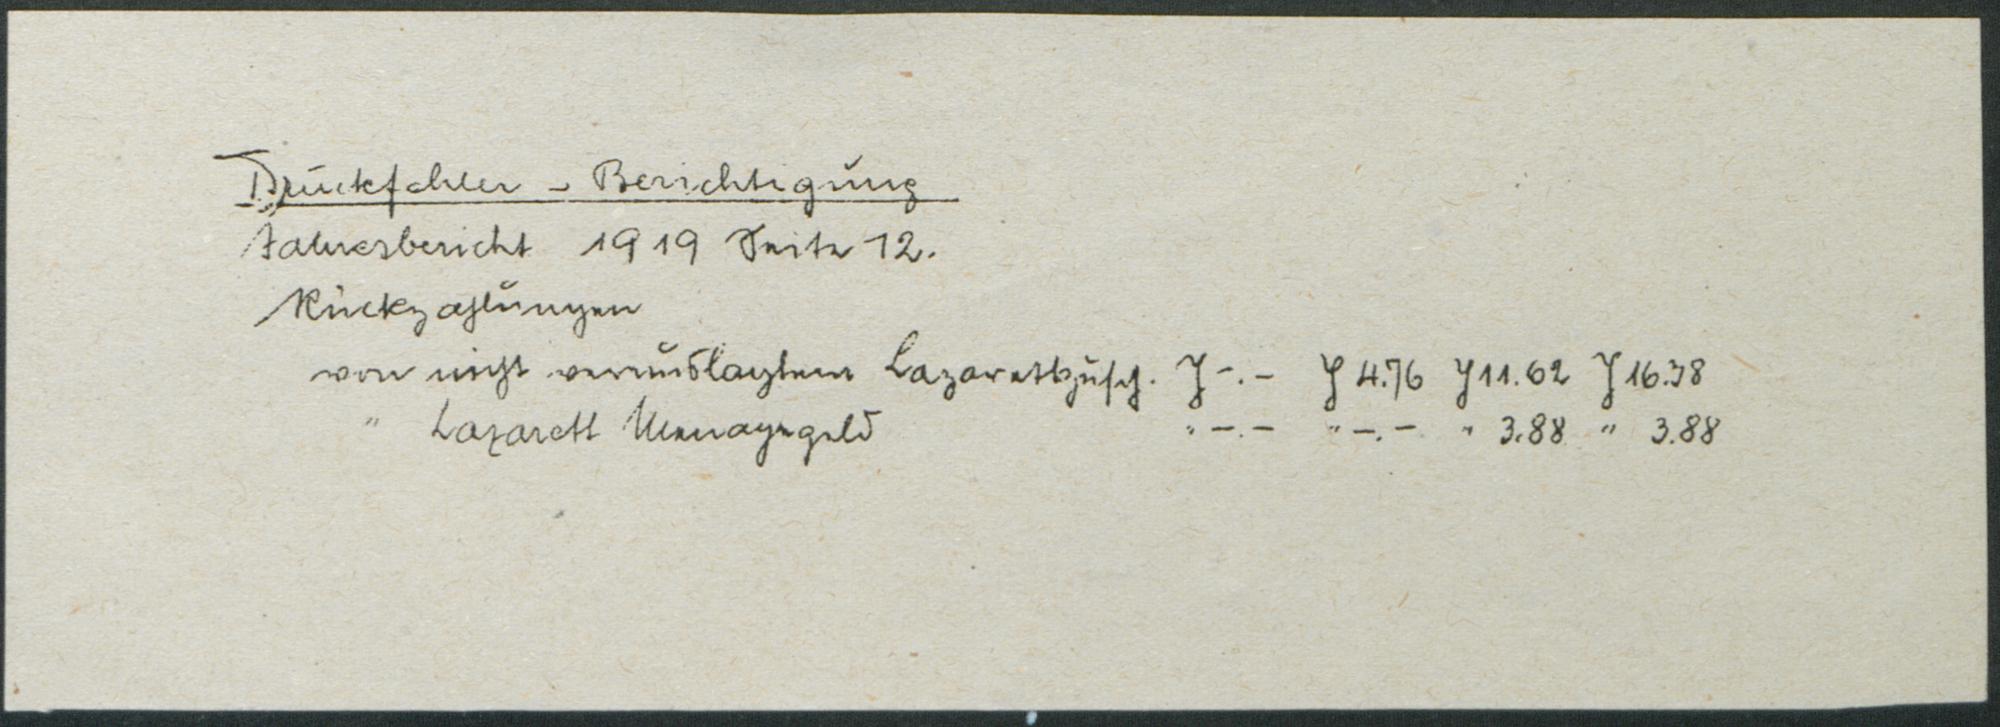 Druckfehler - Berichtigung
Jahresbericht 1919 Seite 12.
Rückzahlungen
von nicht verauslagtem Lazarettzusch. Y -.- Y 4.76 Y 11.62 Y 16.38
" Lazarett Menagegeld " -.- " -.- " 3.88 " 3.88